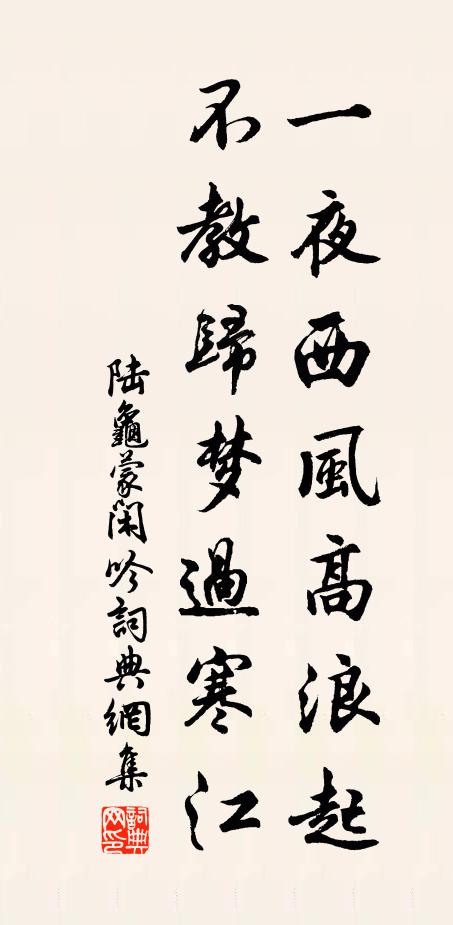 一夜西風高浪起
不教歸梦過寒江
陆龜蒙閑吟詞典網集
詞典網印